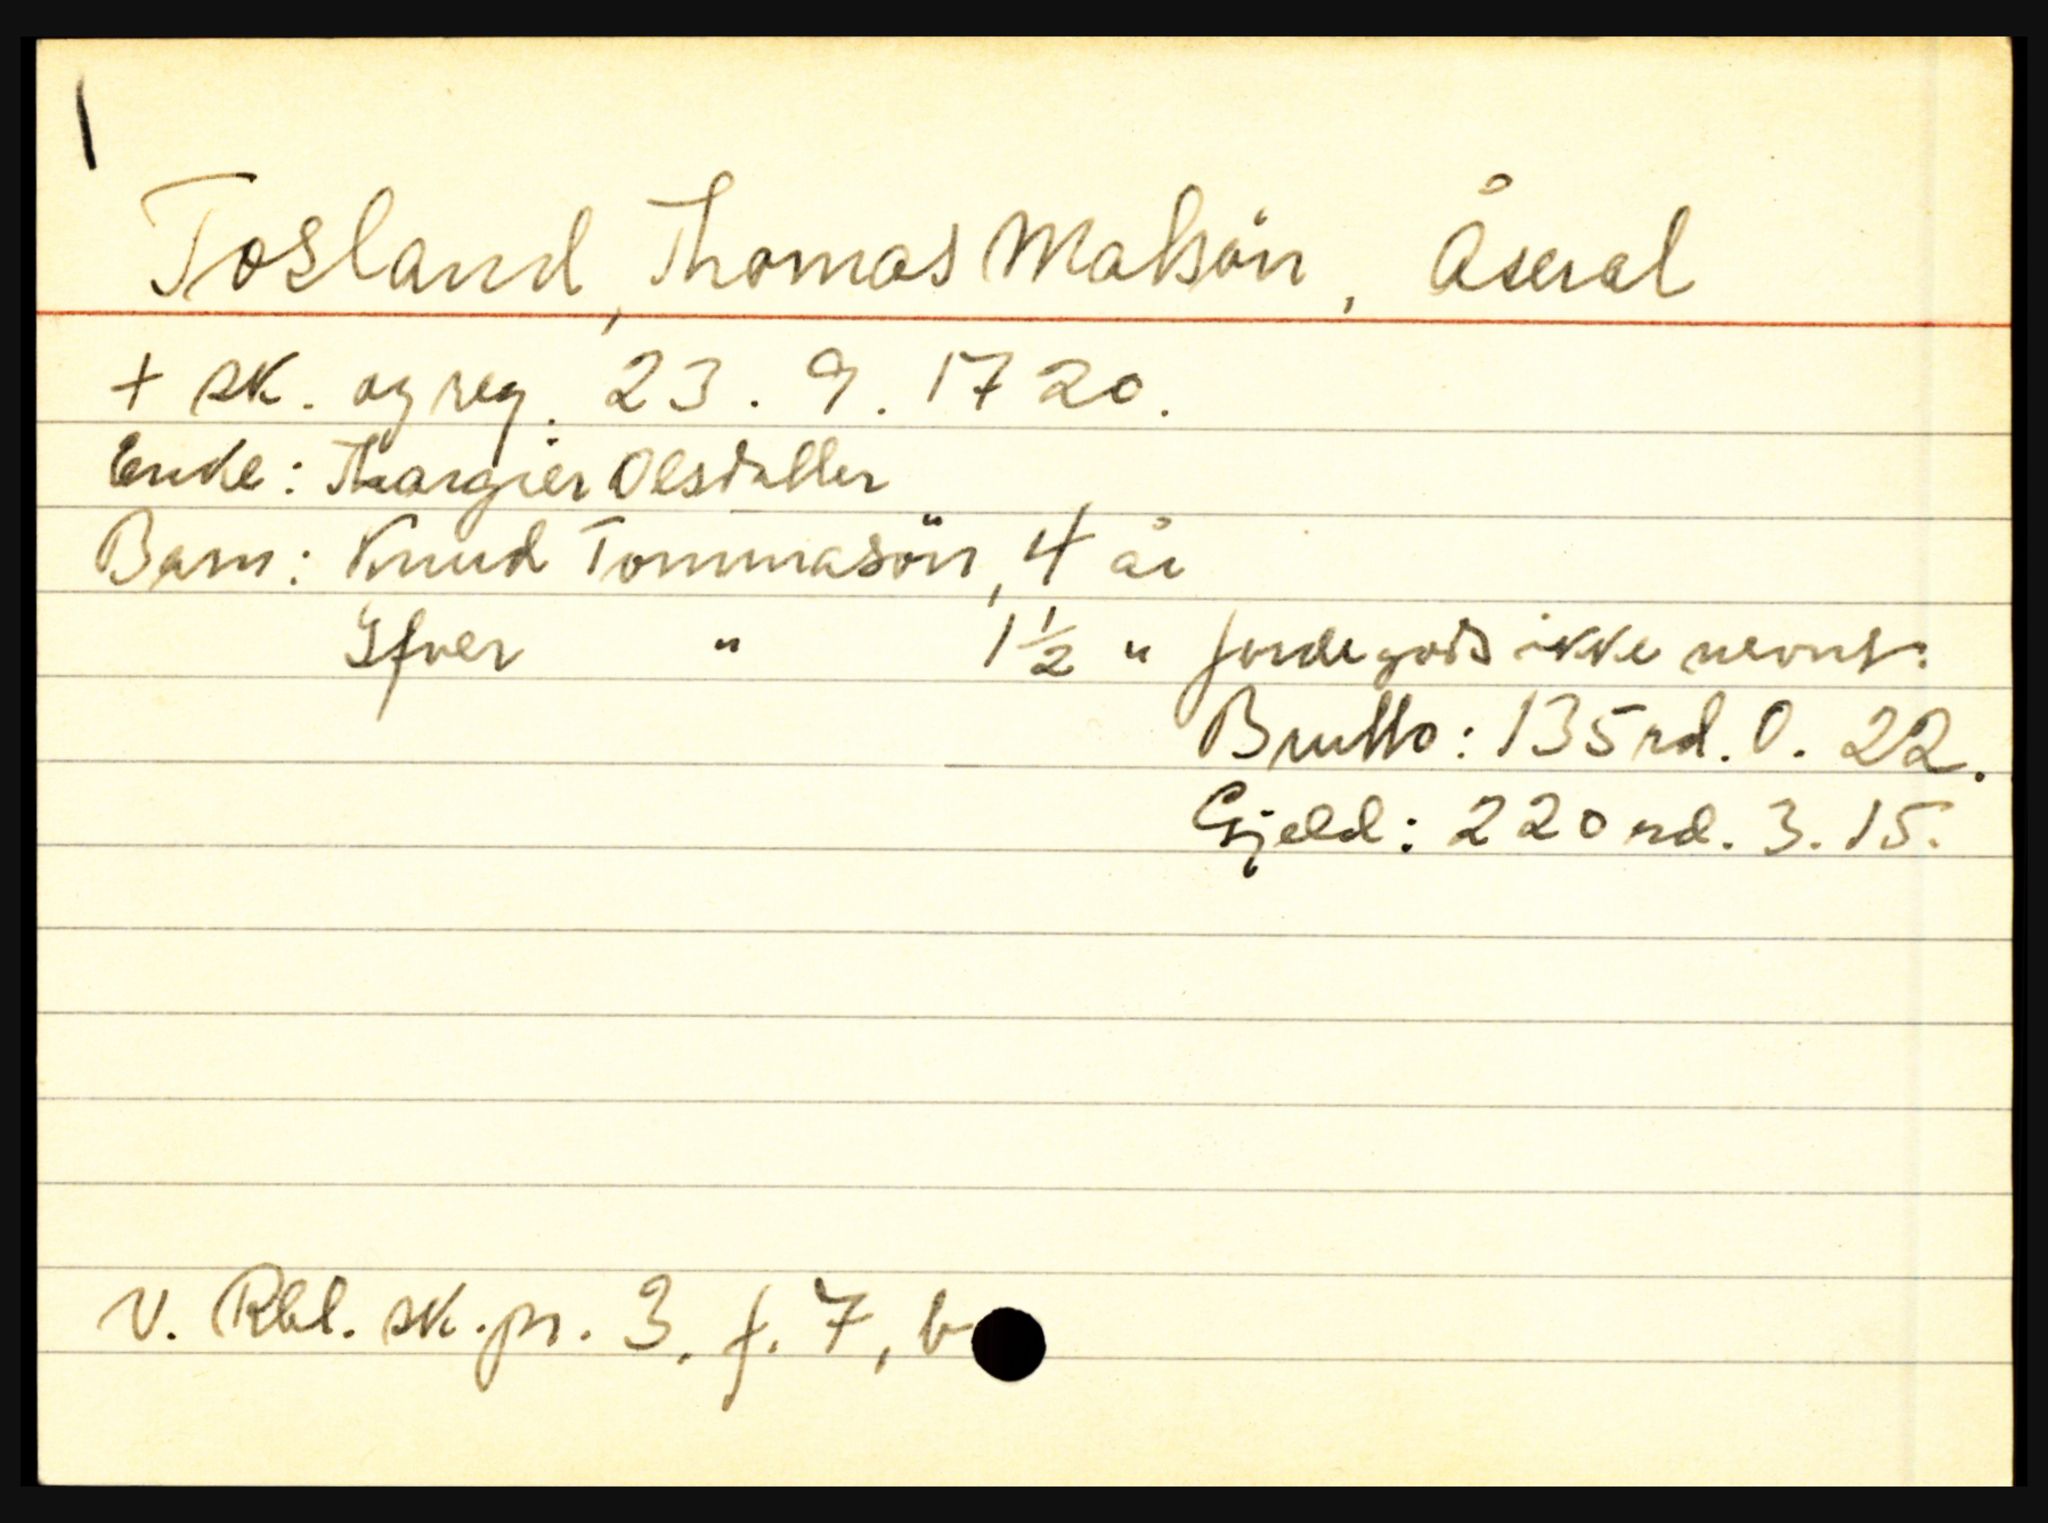 Tosland, Thomas Matsön, Åseral
+ sk. og reg. 23. 9. 1720.
Enke: Thargier Olsdatter
Barn: Knud Tommasön, 4 år
Ifver " 1½ " Jordegods ikke nevnt.
Brutto: 135 rd. 0. 22.
Gjeld: 220 rd. 3. 15.
V. Rbl. sk.pr. 3, f. 7, b